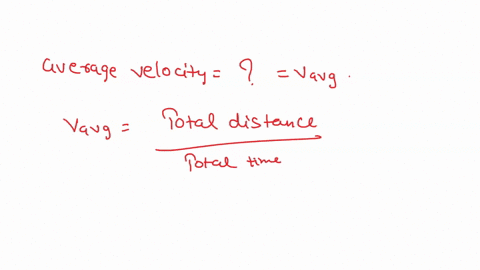 average velocity = ? = Vavg.
Vavg = Total distance
Total time